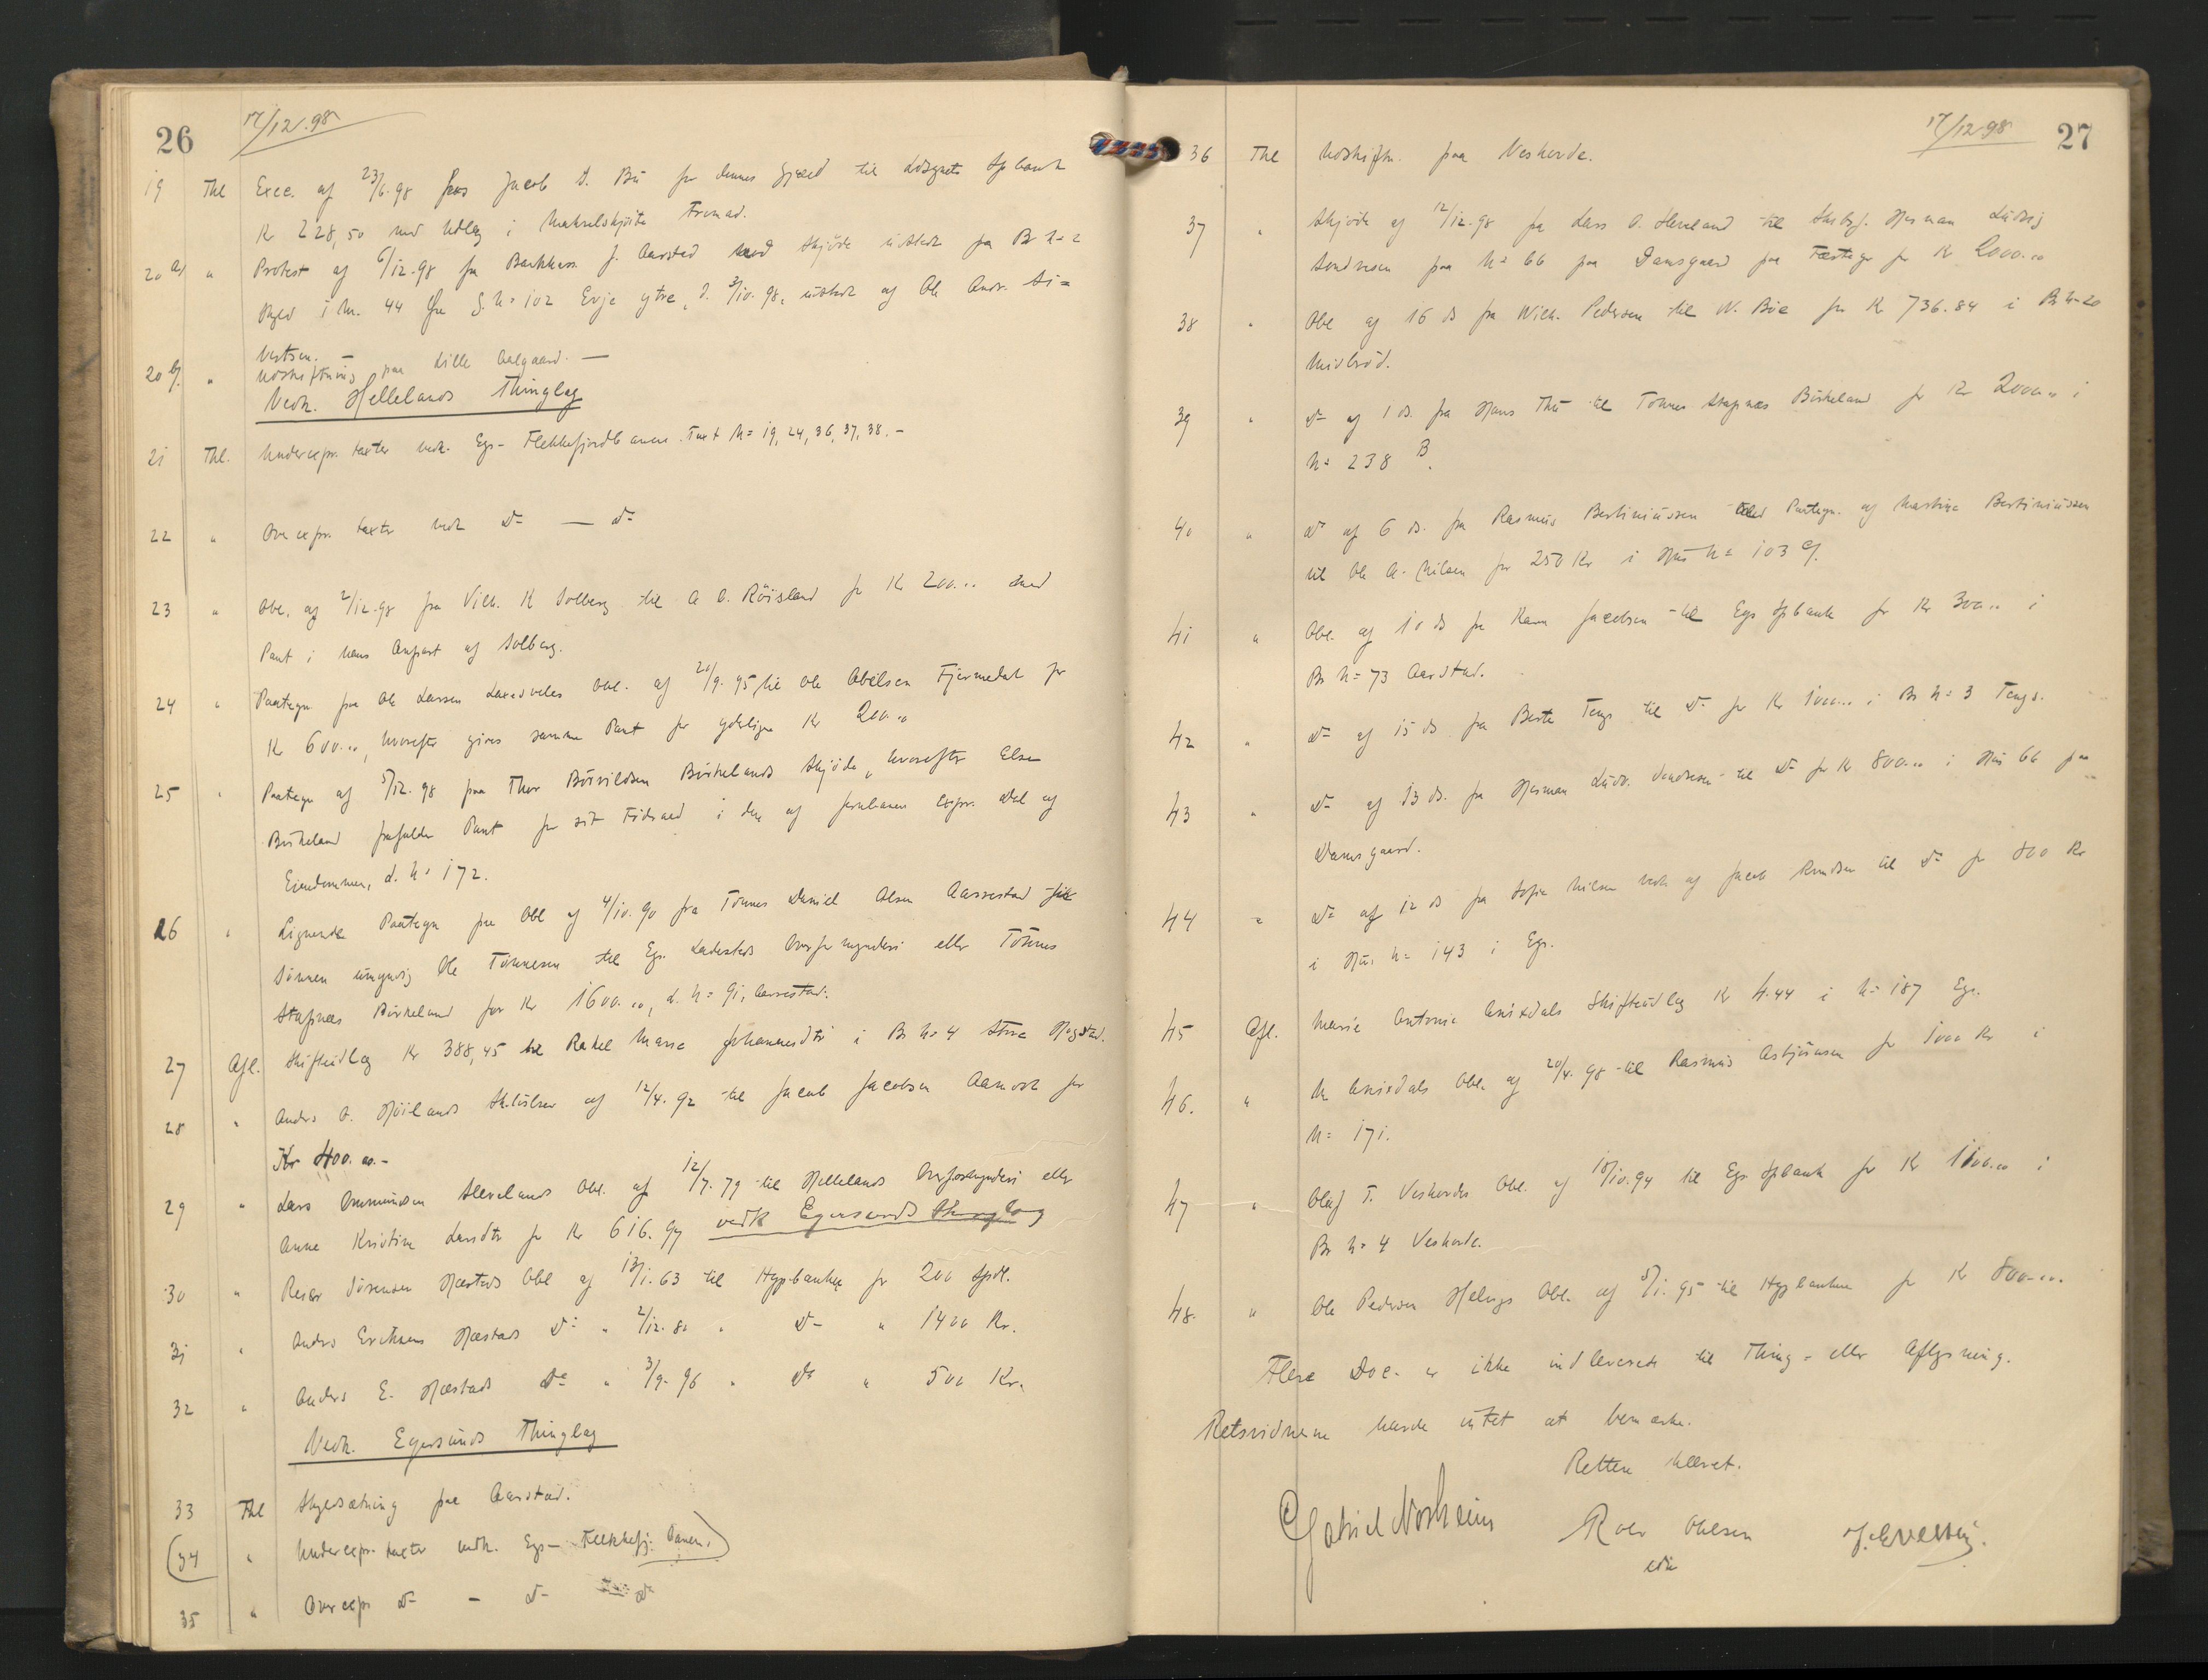 26
17/12.98
19 Thl Exec. af 23/6.98 hos Jacob S. Bu for dennes Gjæld til Spbank
Kr 228,50 med Udlæg i
20 a) " Protest af 6/12.98 fra J. Aarstad mod Skjøde udstedt paa Br N=2
i M. 44 G. N=102 Evje ytre, d. 3/10.98, udstedt af Ole Andr. Si=
vertsen. —
20 b). " Udskiftning paa Lille Aalgaard. —
Vedk. Hellelands Thinglag
21 Thl. Underexpr. taxter vedk. Egs- Flekkefjordbanen. Taxt N= 19, 24, 36, 37, 38. -
22 " Overexpr. taxter vedk D= — D=
23 " Obl. af 2/12.98 fra Vilh. K Solberg til A O. Røisland for Kr 200.00 med
Pant i hans Anpart af Solberg.
24 " Paategn paa Ole Larsen Obl. af 20/9.95 til Ole Abelsen Fjermedal for
Kr 600.00, hvorefter gives samme Pant for yderligere Kr 200.00
25 " Paategn af 5/12.98 paa Thor Birkelands Skjøde, hvorefter Else
Birkeland frafalder Pant for sit Føderaad i den af Jernbanen expr. Del af
Eiendommen, d. N= 172.
26 " Lignende Paategn paa Obl af 4/10.90 fra Tønnes Daniel Olsen Aarrestad
Sønnen umyndig Ole Tønnesen til Egs. Ladesteds Overformynderi eller Tønnes
Stapnæs Birkeland for Kr 1600.00, d. N= 91, Aarrestad.
27 Afl. Skifteudlæg Kr 388,45 til Rakel Marie Johannesdtr i Br N=4 Store
28 " Anders O. Høilands af 12/4.92 til Jacob Jacobsen Aamodt for
Kr 400.00.-
29 " Lars Ommundsen Slevelands Obl. af 12/7.79 til Hellelands Overformynderi eller
Anne Kristine Larsdtr for Kr 616.97 vedk Egersunds Thinglag
30 " Sørensen Hæstads Obl af 13/1.63 til Hypbanken for 200 Spdl.
31 " Anders Eriksens Hæstads D= " 2/12.80 " D= " 1400 Kr.
32 " Anders E. Hæstads D= " 3/9.96 " D= " 500 Kr.
Vedk. Egersunds Thinglag
33 Thl Skyldsætning paa Aarstad.
(34 " Underexpr. taxter vedk. Egs- Flekkefj. Banen.)
35 " Overexpr D= - D= D=
17/12 98
27
36 Thl Udskiftn. paa Veshovde.
37 " Skjøde af 12/12.98 fra Lars O. Sleveland til Herman Ludvig
Sondresen paa N= 66 paa Damsgaard paa for Kr 2000.00
38 " Obl af 16 ds fra Wilh. Pedersen til N. Bøe for Kr 736.84 i Br N=20
Midbrød.
39 " D= af 1 ds. fra Hans Thu til Tønnes Stapnæs Birkeland for Kr 2000.00 i
N= 238 B.
40 " D= af 6 ds. fra Rasmus Bertiniussen med Paategn. af Martine Bertiniussen
til Ole A. Nilsen for 250 Kr i Hus N= 103 c).
41 " Obl. af 10 ds fra Jacobsen til Egs Spbank for Kr 300.00 i
Br N= 73 Aarstad.
42 " D= af 15 ds. fra Berte Tengs til D= for Kr 1000.00 i Br N= 3 Tengs.
43 " D= af 13 ds. fra Herman Ludv. Sondresen til D= for Kr 800.00 i Hus 66 paa
Damsgaard.
44 " D= af 12 ds fra Sofie Nilsen vedk af Jacob Knudsen til D= for 800 Kr
i Hus N= 143 i Egs.
45 Afl. Marie Antonie Skifteudlæg Kr 4.44 i N= 187 Egs.
46. " M Obl. af 20/4.98 til Rasmus Asbjørnsen for 1000 Kr i
N= 171.
47 " Olaf T. Veshovdes Obl. af 18/10.94 til Egs Spbank for Kr 1100.00 i
Br N= 4 Veshovde.
48. " Ole Pedersen Obl. af 5/1.95 til Hypbanken for Kr 800.00.
Flere Doc. er ikke indleverede til Thing- eller Aflysning.
Retsvidnerne havde intet at bemærke.
Retten hævet.
Gabriel Nodheim Roer Olsen
edv